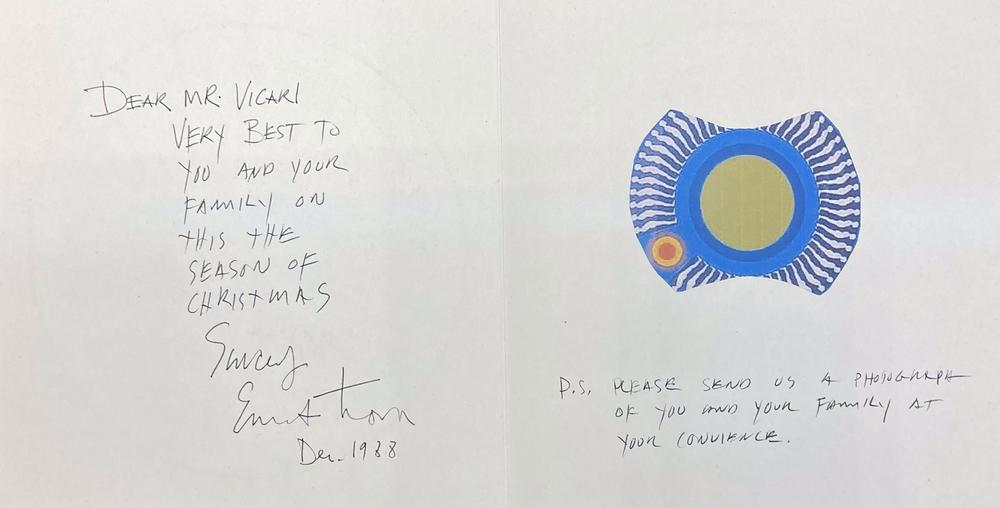 DEAR MR. VICARI
VERY BEST TO
YOU AND YOUR
FAMILY ON
THIS THE
SEASON OF
CHRISTMAS
Dec. 1988
P.S. PLEASE SEND US A PHOTOGRAPH
OF YOU AND YOUR FAMILY AT
YOUR CONVIENCE.